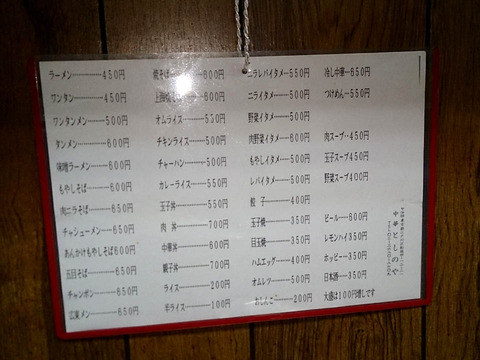 ラーメン………450円
ワンタン………450円
ワンタンメン……500円
タンメン………600円
味噌ラーメン……600円
もやしそば………600円
肉ニラそば………650円
チャシューメン……650円
あんかけもやしそば600円
五目そば………650円
チャンポン………650円
広東メン………650円
焼そば………600円
600円
オムライス………550円
チキンライス……500円
チャーハン………500円
カレーライス……550円
玉子丼………550円
肉 丼………700円
中華丼………600円
親子丼………700円
ライス………200円
半ライス………100円
ニラレバイタメ…550円
ニライタメ………500円
野菜イタメ………500円
肉野菜イタメ……600円
もやしイタメ……500円
レバイタメ………500円
餃 子………400円
玉子焼………350円
目玉焼………350円
ハムエッグ………400円
オムレツ………500円
おしんこ………200円
冷し中華…650円
つけめん…550円
肉スープ…450円
玉子スープ450円
野菜スープ400円
ビール……600円
レモンハイ350円
ホッピー…350円
日本酒……350円
大盛は100円増しです
中華 としのや